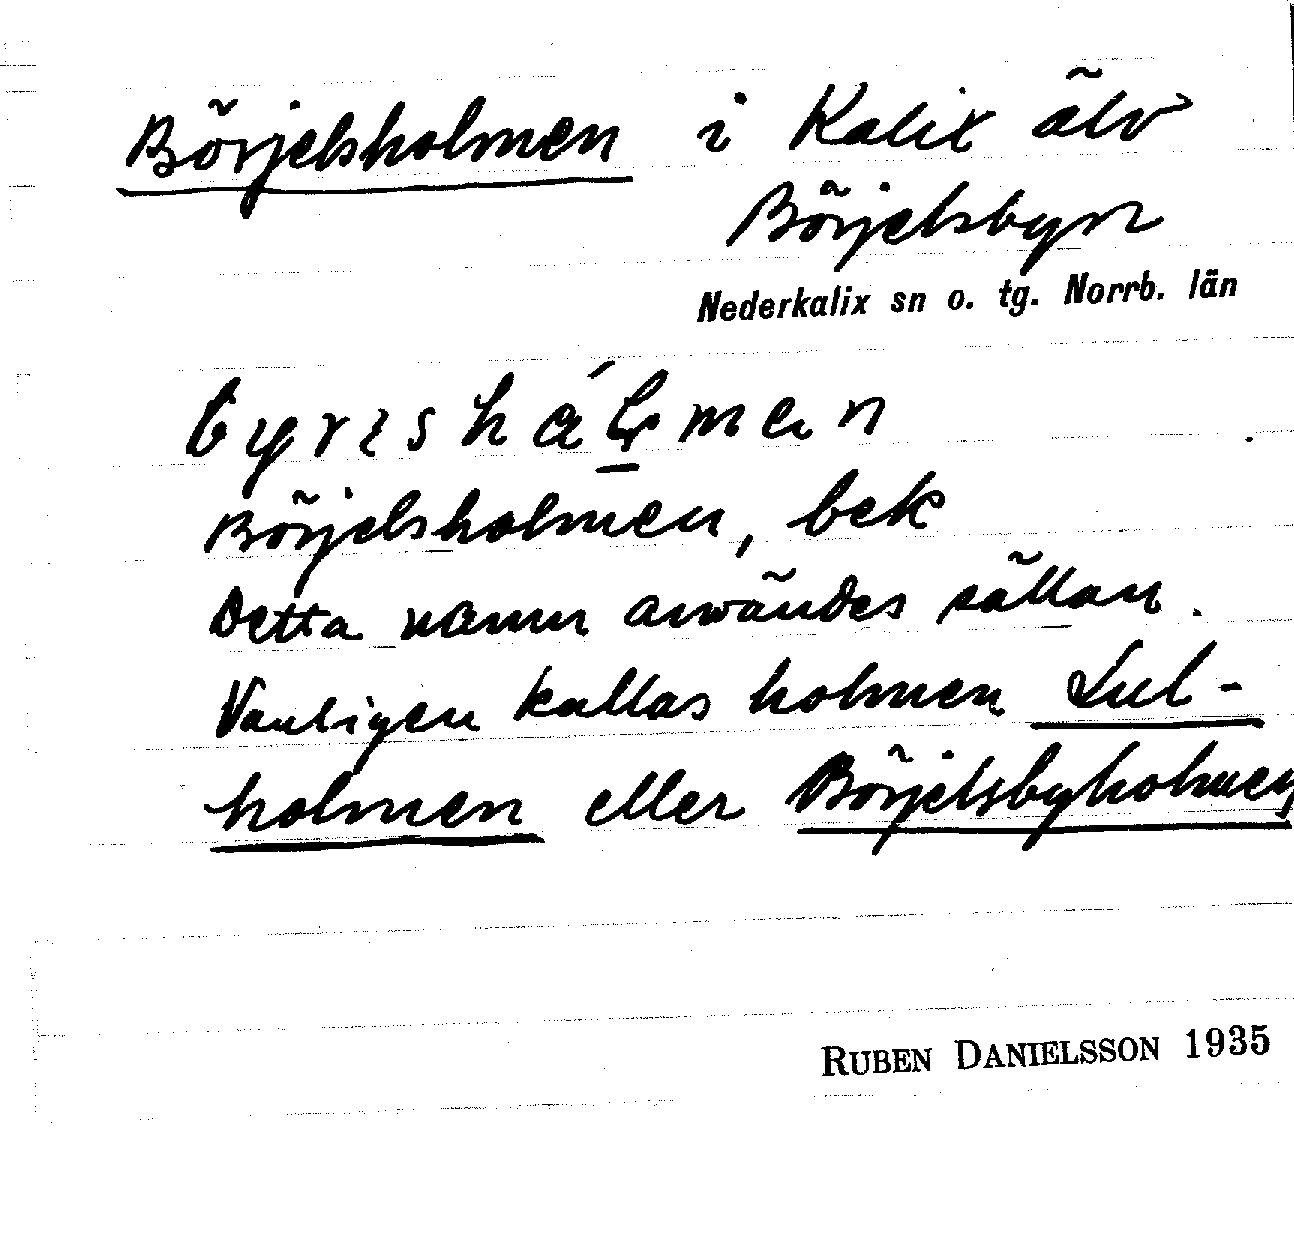 Börjelsholmen i Kalix älv
Börjelsbyn
Nederkalix sn o. tg. Norrb. län
Börjelsholmen, bek
Detta namn användes sällan.
Vanligen kallas holmen Lul-
holmen eller Börjelsbyholmen
RUBEN DANIELSSON 1935